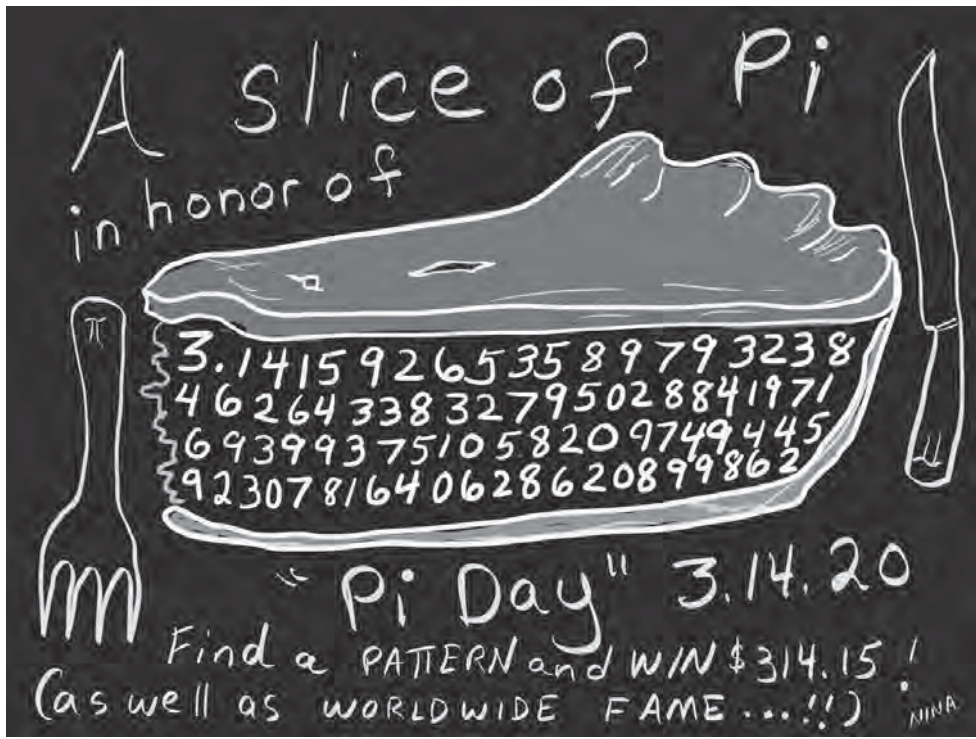 A slice of Pi
in honor of
π
3.14159265358979323 8
4626433832795028841971
69399375105820974944 5
92307816406286208998 62
"Pi Day" 3.14.20
Find a PATTERN and WIN $314.15!
(as well as WORLDWIDE FAME...!!)
NINA